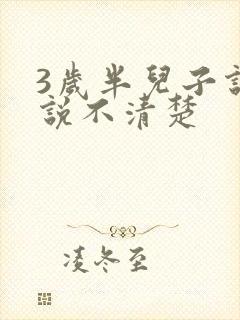 3歲半兒子
說不清楚
凌冬至